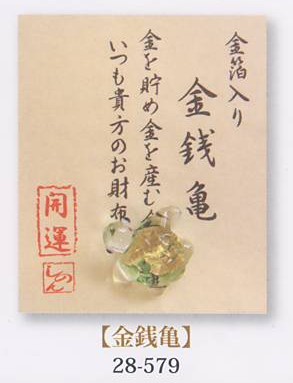 金箔入り
金銭亀
金を貯め金を産む金
いつも貴方のお財布
開運
しのん
【金銭亀】
28-579